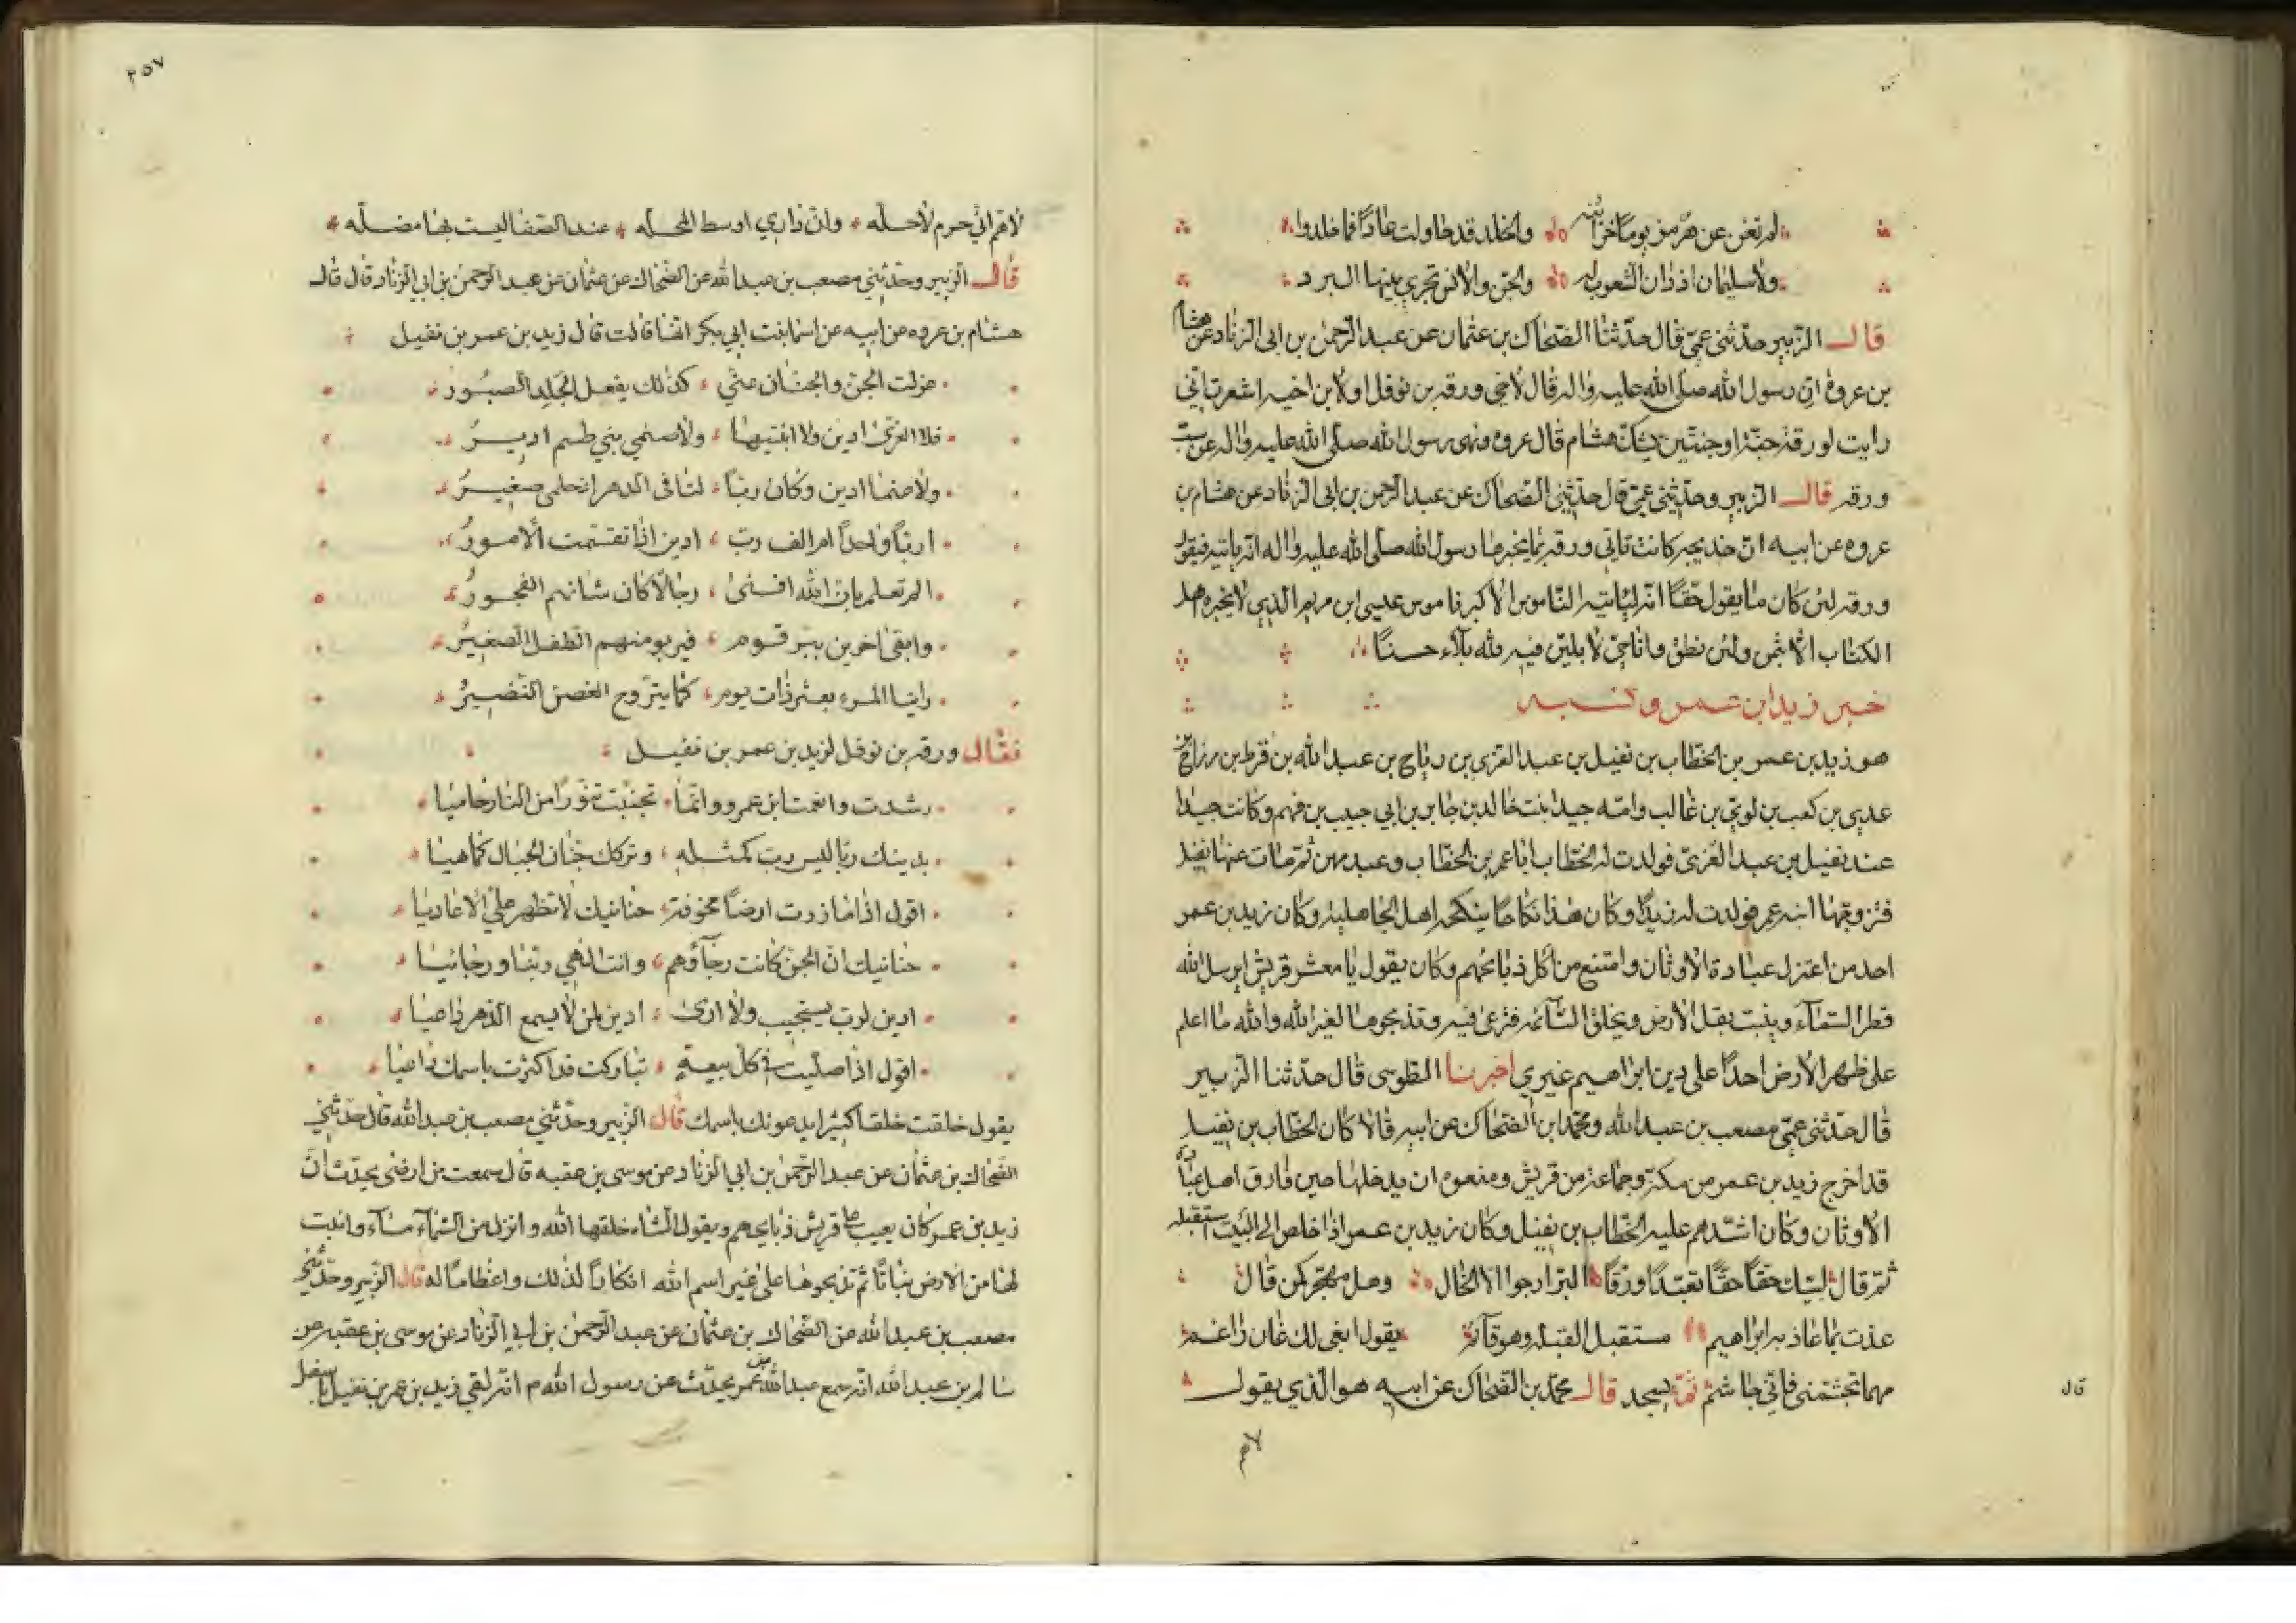 لم تغن عن هرمز يوما خزائنه والخلد قد حاولت عاد فما خلدوا
ولا سليمان اذ دان الشعوب له والجن والانس تجري بينها البرد
قال الزبير حدثني عمي قال حدثنا الضحاك بن عثمان عن عبد الرحمن بن ابي الزناد عن هشام
بن عروة ان رسول الله صلى الله عليه واله قال لاخي ورقه بن نوفل او لابن اخيه اشعرت اني
رايت لورقه جنة او جنتين يشك هشام قال عروه ونهى رسول الله صلى الله عليه واله عن سب
ورقه قال الزبير وحدثني عمي قال حدثني الضحاك عن عبد الرحمن بن ابي الزناد عن هشام بن
عروه عن ابيه ان خديجه كانت تاتي ورقه بما يخبرها رسول الله صلى الله عليه واله انه ياتيه فيقول
ورقه لئن كان ما يقول حقا انه لياتيه الناموس الاكبر ناموس عيسى ابن مريم الذي لا يخبره اهل
الكتاب الا بثمن ولئن نطق وانا حي لابلين فيه لله بلاء حسنا
خبر زيد ابن عمر ونسبه
هو زيد بن عمر بن الخطاب بن نفيل بن عبد العزى بن رياح بن عبد الله بن قرط بن رزاح بن
عدي بن كعب بن لوئي بن غالب وامه جيدا بنت خالد بن جابر بن ابي حبيب بن فهم وكانت جيدا
عند نفيل بن عبد العزى فولدت له الخطاب ابا عمر بن الخطاب وعبد نهم ثم مات عنها نفيل
فتزوجها ابنه عمر فولدت له زيدا وكان هذا نكاحا ينكحه اهل الجاهلية وكان زيد بن عمر
احد من اعتزل عبادة الاوثان وامتنع من اكل ذبائحهم وكان يقول يا معشر قريش ايرسل الله
قطر السماء وينبت بقل الارض ويخلق السائمه فترعى فيه وتذبحوها لغير الله والله ما اعلم
على ظهر الارض احدا على دين ابراهيم غيري اخبرنا الطوسي قال حدثنا الزبير
قال حدثني عمي مصعب بن عبد الله ومحمد ابن الضحاك عن ابيه قالا كان الخطاب بن نفيل
قد اخرج زيد بن عمر من مكة وجماعة من قريش ومنعوه ان يدخلها حين فارق اهل عبادة
الاوثان وكان اشدهم عليه الخطاب بن نفيل وكان زيد بن عمر اذا خلص الى البيت استقبله
ثم قال لبيك حقا حقا تعبدا ورقا البر ارجوا لا الخال وهل مهجر كمن قال
عذت بما عاذ به ابراهيم مستقبل القبله وهو قائم يقول انفي لك عان راغم
مهما تجشمني فاني جاشم ثم يسجد قال محمد بن الضحاك عن ابيه هو الذي يقول
لاهم
قال
٢٥٧
لاهم اني حرم لا حله وان داري اوسط المحله عند الصفا ليست بها مضله
قال الزبير وحدثني مصعب بن عبد الله عن الضحاك عن عثمان عن عبد الرحمن بن ابي الزناد قال قال
هشام بن عروه عن ابيه عن اسما بنت ابي بكر انها قالت قال زيد بن عمر بن نفيل
عزلت الجن والجنان عني كذلك يفعل الجلد الصبور
فلا العزى ادين ولا ابنتيها ولا صنمي بني طسم ادير
ولا صنما ادين وكان ربا لنا في الدهر اذ حلمي صغير
اربا واحدا ام الف رب ادين اذا تقسمت الامور
الم تعلم بان الله افنى رجالا كان شانهم الفجور
وابقى اخرين ببر قوم فيربو منهم الطفل الصغير
راينا المرء يعثر ذات يوم كما يتروح الغصن النضير
فقال ورقه بن نوفل لزيد بن عمر بن نفيل
رشدت وانعمت ابن عمرو وانما تجنبت تنورا من النار حاميا
بدينك ربا ليس رب كمثله وتركك جنان الجبال كما هيا
اقول اذا ما زرت ارضا مخوفة حنانيك لا تظهر علي الاعاديا
حنانيك ان الجن كانت رجاؤهم وانت الهي ربنا ورجائيا
ادين لرب يستجيب ولا ارى ادين لمن لا يسمع الدهر داعيا
اقول اذا صليت في كل بيعة تباركت قد اكثرت باسمك داعيا
يقول خلقت خلقا كثيرا يدعونك باسمك قال الزبير وحدثني مصعب بن عبد الله قال حدثني
الضحاك بن عثمان عن عبد الرحمن بن ابي الزناد عن موسى بن عقبه قال سمعت من ارضى يحدث ان
زيد بن عمر كان يعيب على قريش ذبايحهم ويقول الشاه خلقها الله وانزل من السماء ماء وانبت
لها من الارض نباتا ثم تذبحوها على غير اسم الله انكارا لذلك واعظاما له قال الزبير وحدثني
مصعب بن عبد الله عن الضحاك بن عثمان عن عبد الرحمن بن ابي الزناد عن موسى بن عقبه عن
سالم بن عبد الله انه سمع عبد الله بن عمر يحدث عن رسول الله م انه لقي زيد بن عمر بن نفيل باسفل